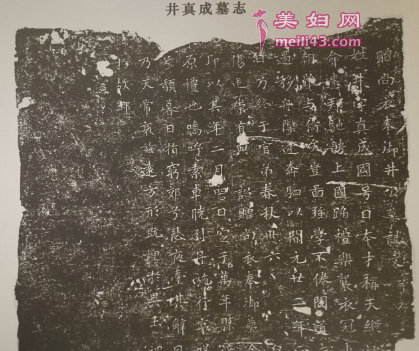 井真成墓志
美妇网
meili43.com
贈尚衣奉御井公墓誌文
姓井字真成國号日本才稱天縱
命遠邦馳騁上國蹈禮樂襲衣冠
朝難與儔矣豈圖強學不倦問道
遇移舟隙逢奔駟以開元廿二年
日乃終于官弟春秋卅六
傷追崇有典詔贈尚衣奉御葬令
即以其年二月四日窆于萬年縣
原禮也嗚呼素車曉引丹旐行哀
兮頹暮日指窮郊兮悲夜臺其辭曰
乃天常哀茲遠方形既埋于異土
歸于故鄉